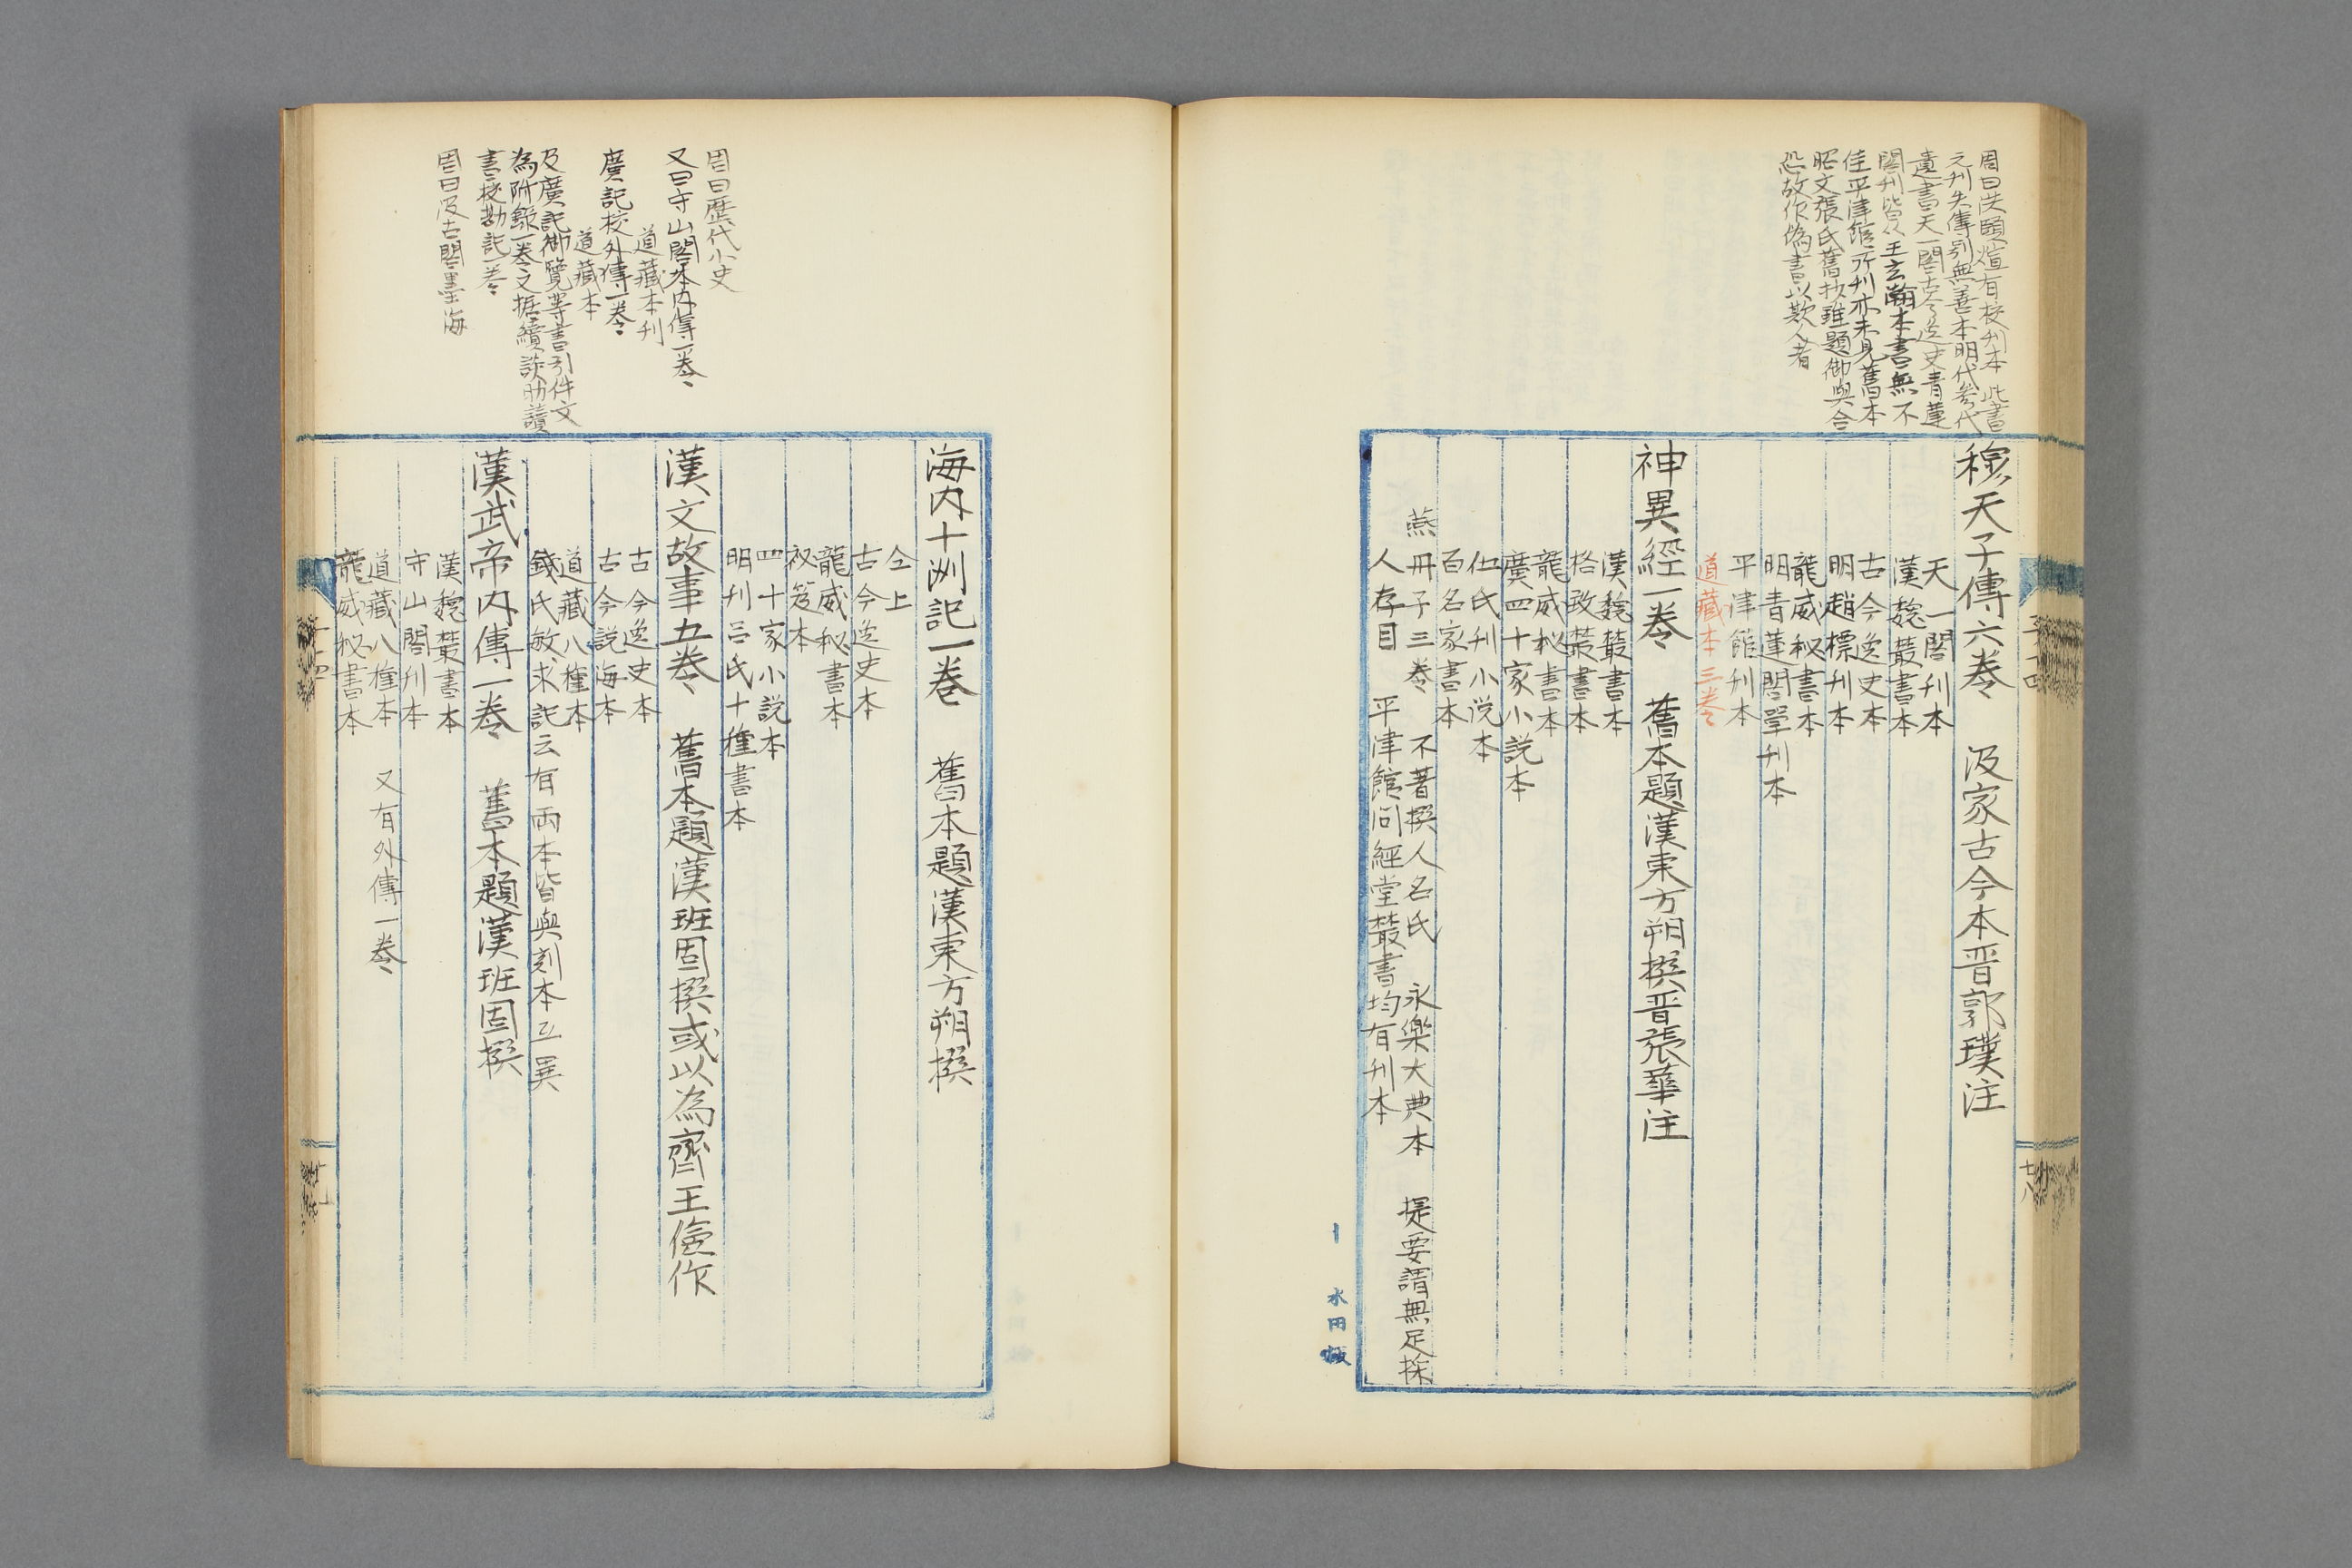 周曰洪頤煊有校刊本此書
元刊失傳別無善本明代李代
遺書天一閣古今逸史青蓮
閣刊皆從王玄翰本書無不
佳平津館所刊亦未見舊本
昭文張氏舊抄雖題御與合
恐故作偽書以欺人者
穆天子傳六卷 汲冢古今本晋郭璞注
天一閣刊本
漢魏叢書本
古今逸史本
明趙標刊本
龍威秘書本
明青蓮閣單刊本
平津館刊本
道藏本三卷
神異經一卷 舊本題漢東方朔撰晋張華注
漢魏叢書本
格致叢書本
龍威秘書本
廣四十家小説本
仕氏刊小说本
百名家書本
燕丹子三卷 不著撰人名氏 永樂大典本 提要謂無足採
人存目 平津館問經堂叢書均有刊本
水田
周曰歷代小史
又曰守山閣本内傳一卷
道藏本刊
廣記校外傳一卷
道藏本
及廣記御覽等書引佚文
為附錄一卷又據續談助讀
書校勘記一卷
周曰汲古閣墨海
海内十洲記一卷 舊本題漢東方朔撰
仝上
古今逸史本
龍威秘書本
祕笈本
四十家小説本
明刊呂氏十種書本
漢文故事五卷 舊本題漢班固撰或以為齊王儉作
古今逸史本
古今説海本
道藏八種本
錢氏敏求記云有兩本皆與刻本互異
漢武帝内傳一卷 舊本題漢班固撰
漢魏叢書本
守山閣刊本
道藏八種本 又有外傳一卷
龍威秘書本